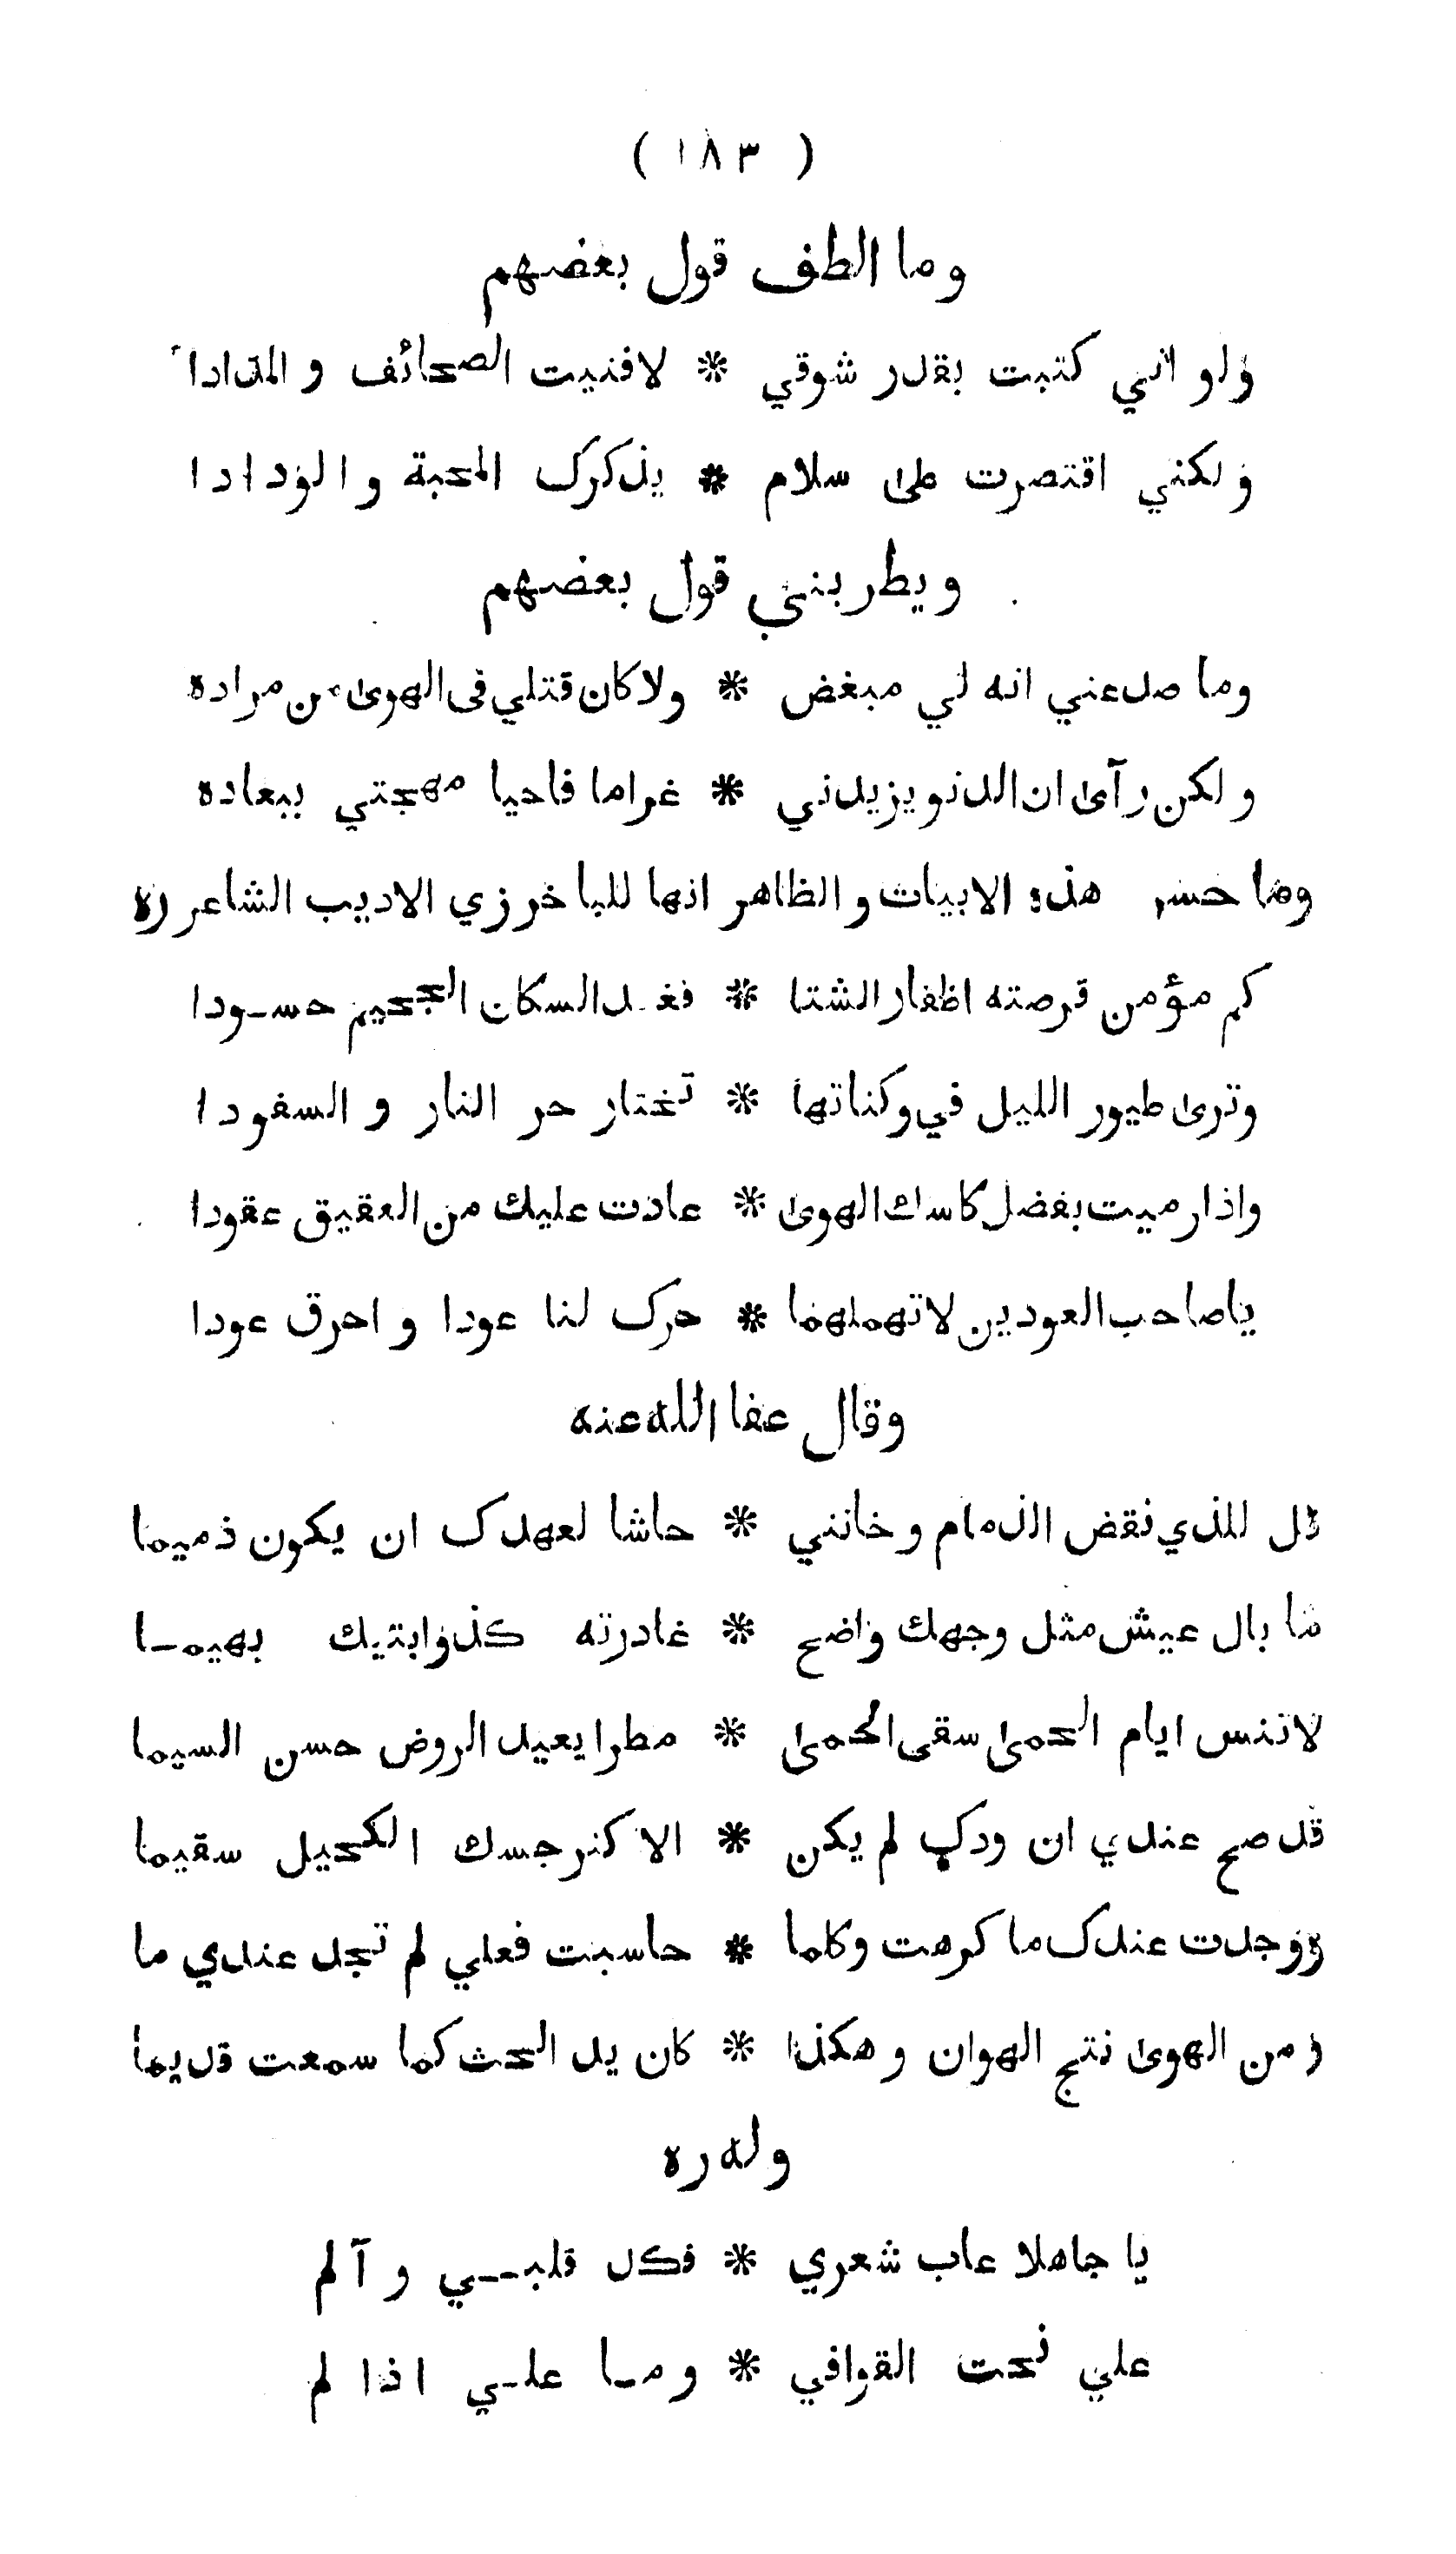 ( ١٨٣ )
وما الطف قول بعضهم
ولو انني كتبت بقدر شوقي * لافنيت الصحائف و المدادا
ولكنني اقتصرت على سلام * يذكرك المحبة والودادا
ويطربني قول بعضهم
وما صد عني انه لي مبغض * ولا كان قتلي فى الهوى من مراده
ولكن رآى ان الدنو يزيدني * غراما فاحيا مهجتي ببعاده
وما حسن هذه الابيات والظاهر انها للباخرزي الاديب الشاعر ره
كم مؤمن قرصته اظفار الشتا * فغدا لسكان الجحيم حسودا
وترى طيور الليل في وكناتها * تختار حر النار و السفودا
واذا رميت بفضل كاسك الهوى * عادت عليك من العقيق عقودا
يا صاحب العودين لا تهملهما * حرك لنا عودا واحرق عودا
وقال عفا الله عنه
قل للذي نقض الذمام وخانني * حاشا لعهدك ان يكون ذميما
ما بال عيش مثل وجهك واضح * غادرته كذوابتيك بهيما
لا تنس ايام الحمى سقى الحمى * مطرا يعيد الروض حسن السيما
قد صح عندي ان ودك لم يكن * الا كنرجسك الكحيل سقيما
ووجدت عندك ما كرهت وكلما * حاسبت فعلي لم تجد عندي ما
ومن الهوى نتج الهوان وهكذا * كان يد الحث كما سمعت قديما
وله ره
يا جاهلا عاب شعري * فكل قلبي و آلم
علي نحت القوافي * وما علي اذا لم